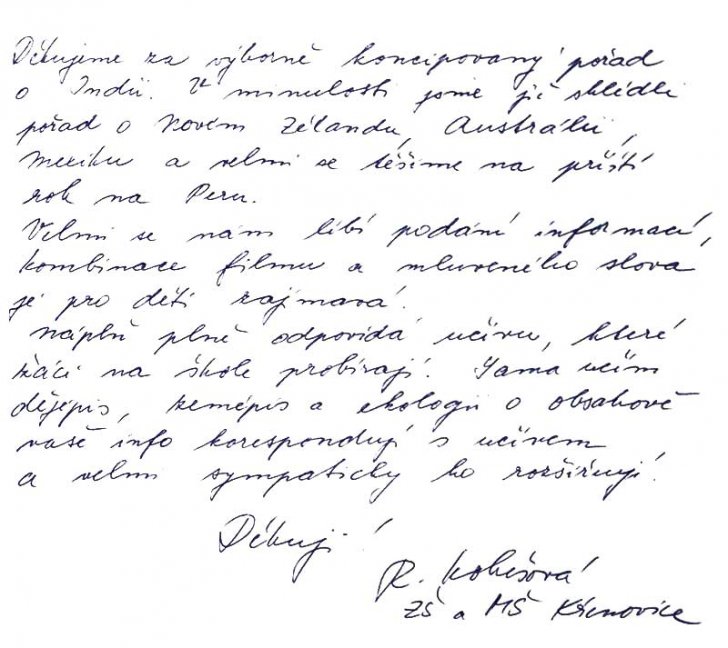 Děkujeme za výborně koncipovaný pořad
o Indii. V minulosti jsme již shlédli
pořad o Novém Zélandu, Austrálii,
Mexiku a velmi se těšíme na příští
rok na Peru.
Velmi se nám líbí podání informací,
kombinace filmu a mluveného slova
je pro děti zajímavá.
Náplň plně odpovídá učivu, které
žáci na škole probírají. Sama učím
dějepis, zeměpis a ekologii a obsahově
vaše info korespondují s učivem
a velmi sympaticky ho rozšiřují.
Děkuji!
R.
ZŠ a MŠ Křenovice